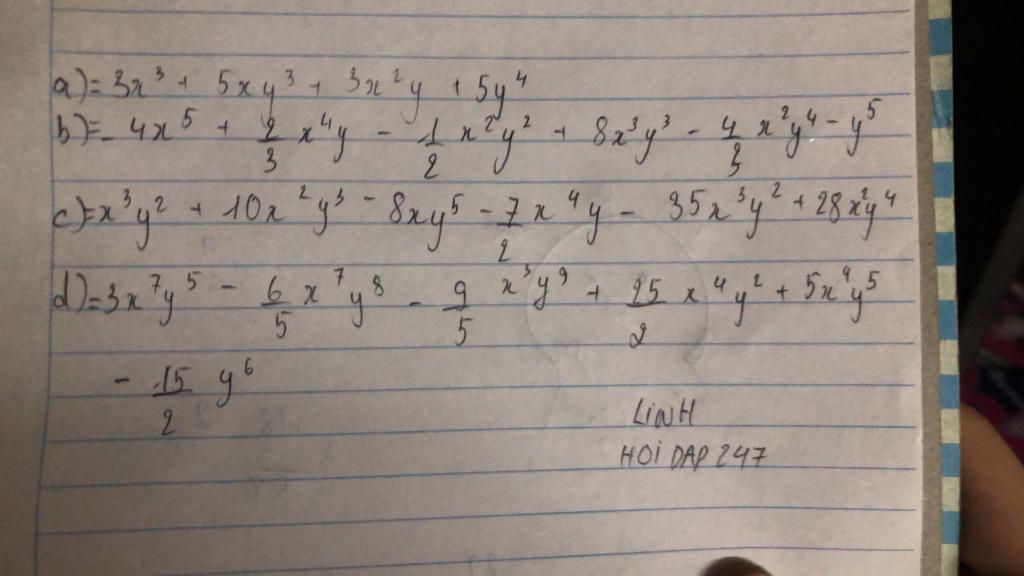 a) = 3x³ + 5xy³ + 3x²y + 5y⁴
b) = -4x⁵ + 2/3 x⁴y - 1/2 x²y² + 8x³y³ - 4/3 x²y⁴ - y⁵
c) = x³y² + 10x²y³ - 8xy⁵ - 7/2 x⁴y - 35x³y² + 28x²y⁴
d) = 3x⁷y⁵ - 6/5 x⁷y⁸ - 9/5 x³y⁹ + 25/2 x⁴y² + 5x⁴y⁵
- 15/2 y⁶
LiNH
HOI DAP 247